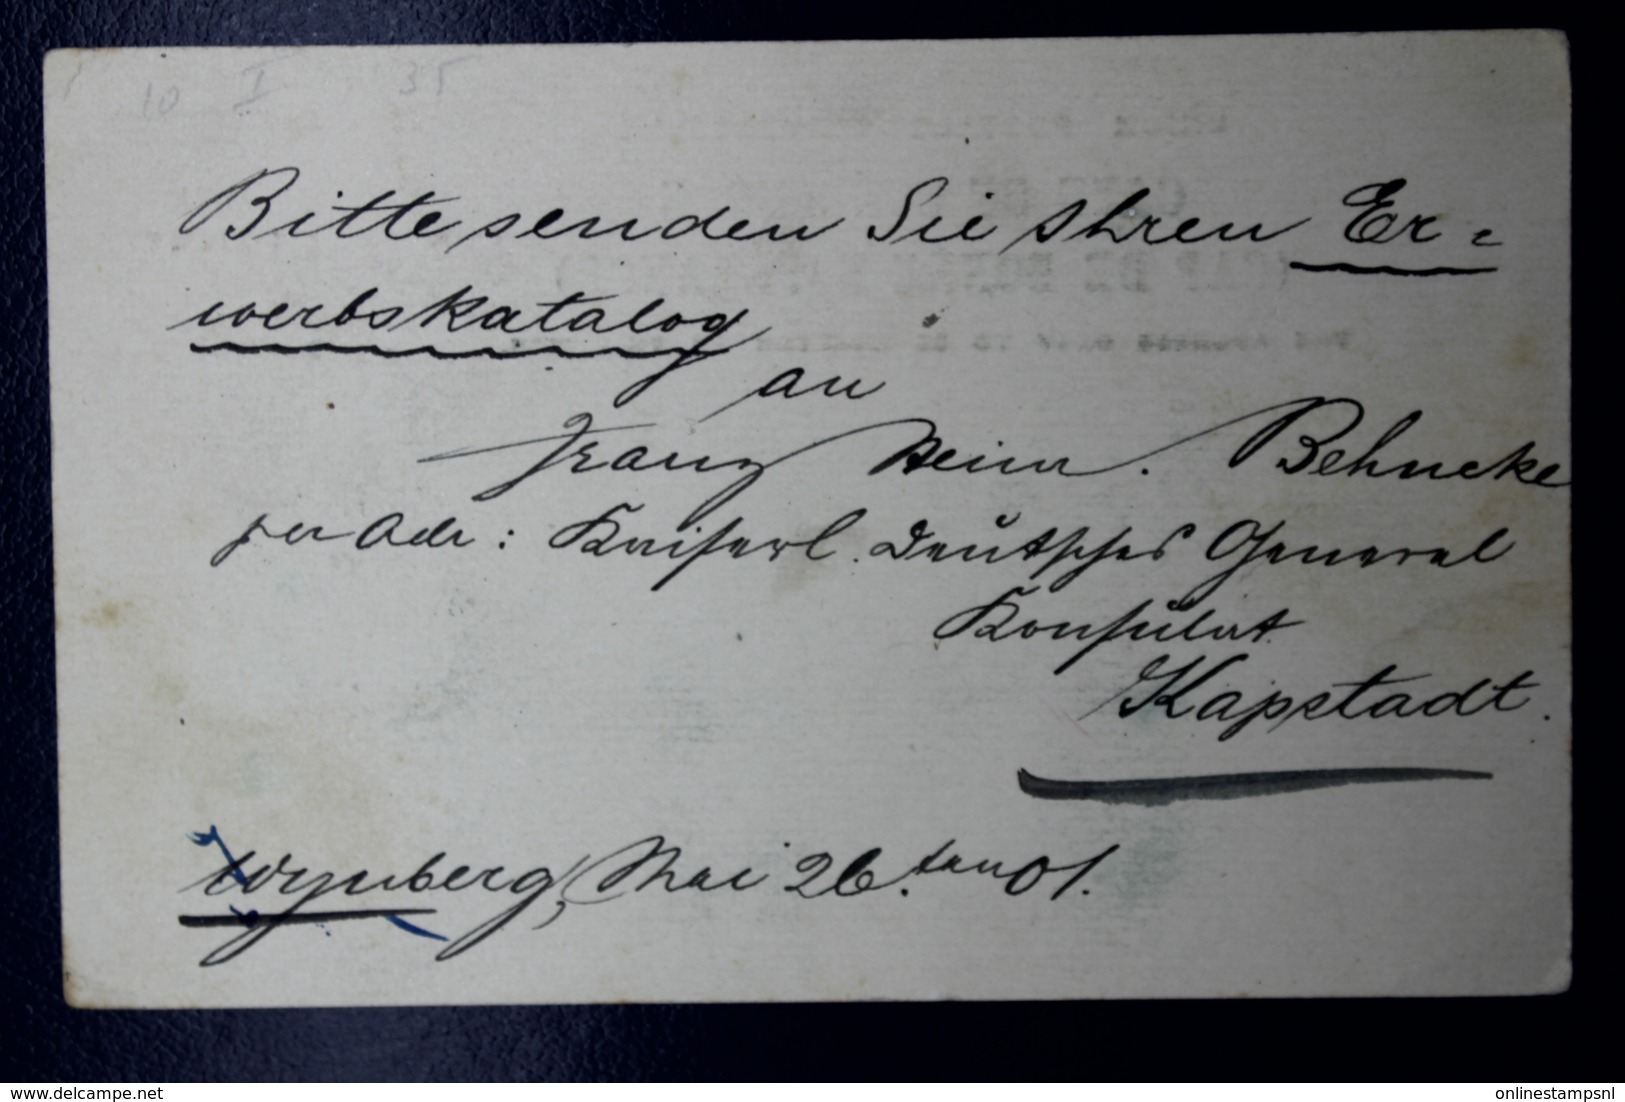 10 I 35
Bitte senden Sie Ihren Er-
werbskatalog
an
Franz Heinr. Behncke
per Adr: Kaiserl. Deutsches General
Konsulat
Kapstadt.
Wynberg, Mai 26.ten 01.
delcampe.net
onlinestampsnl